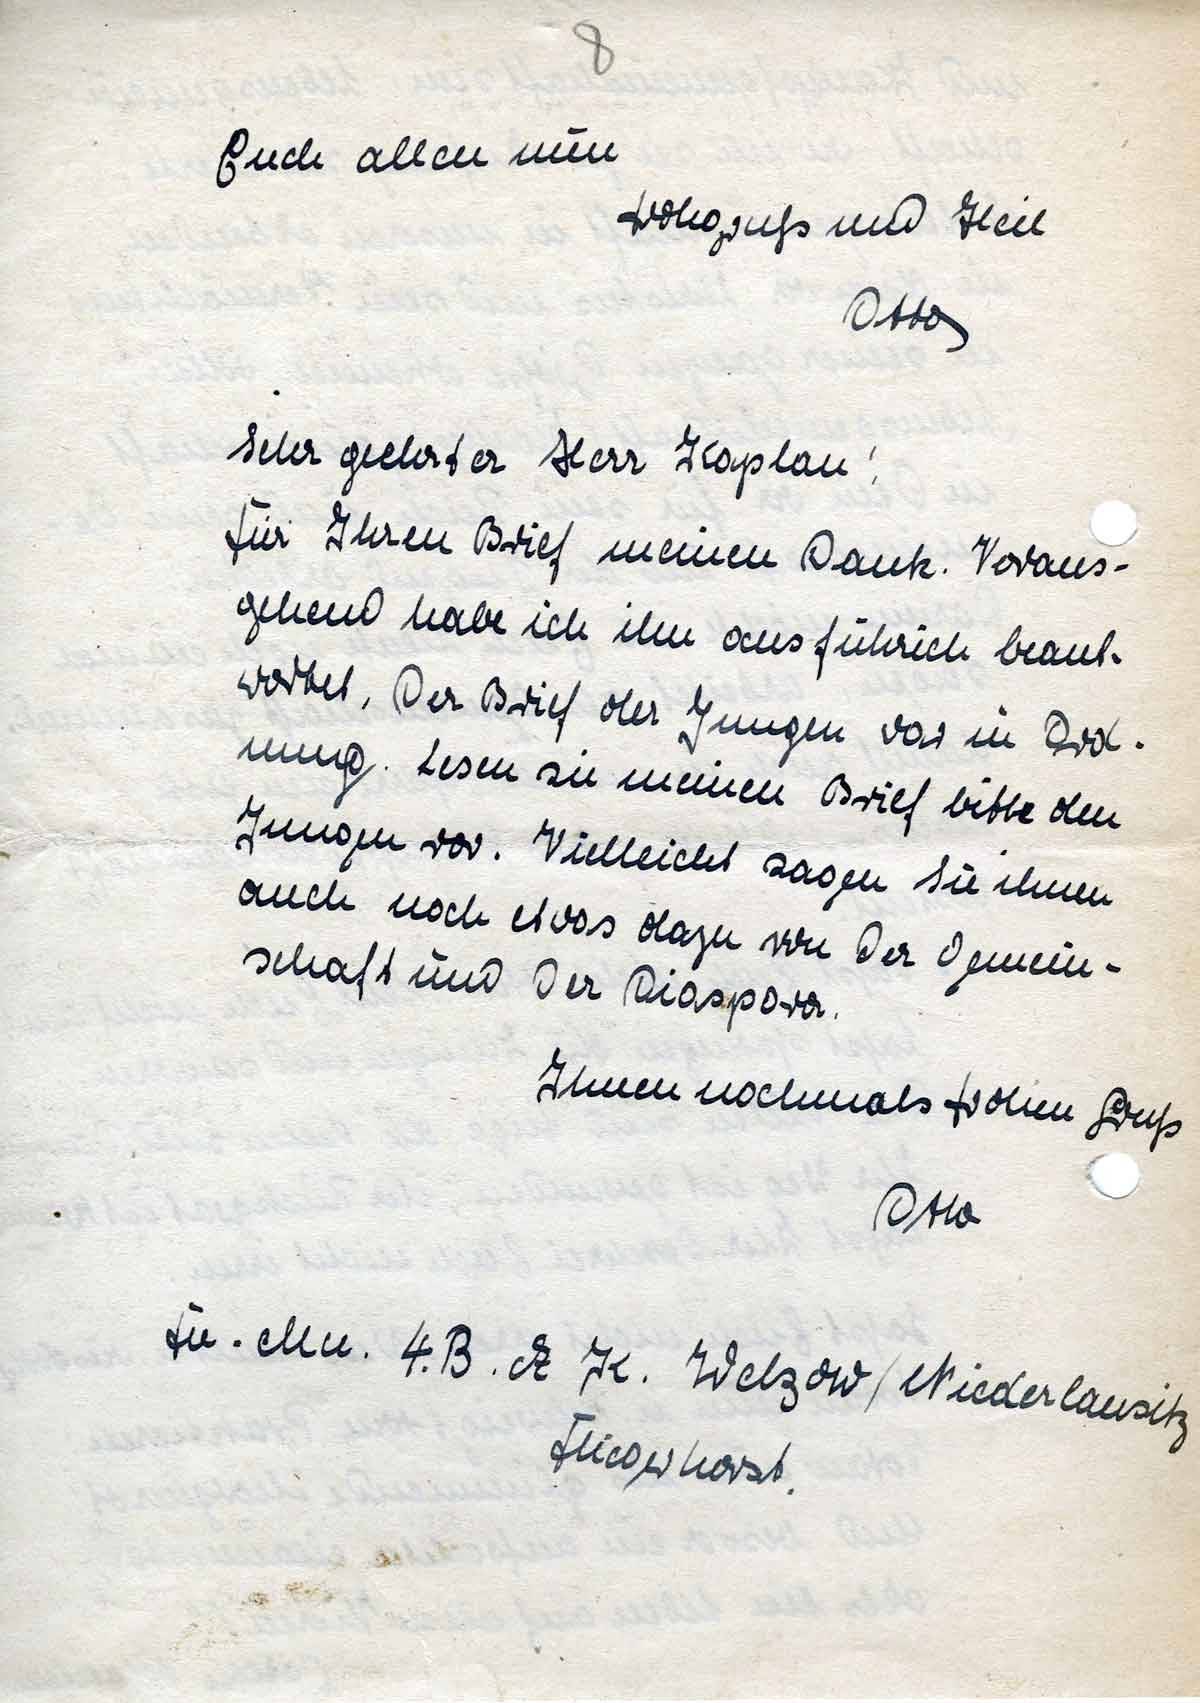 8
Euch allen nun
Frohgruß und Heil
Otto
Sehr geehrter Herr Kaplan!
Für Ihren Brief meinen Dank. Voraus-
gehend habe ich ihn ausführich beant-
wortet. Der Brief der Jungen war in Ord-
nung. Lesen sie meinen Brief bitte den
Jungen vor. Vielleicht sagen Sie ihnen
auch noch etwas dazu von der Gemein-
schaft und der Diaspora.
Ihnen nochmals frohen Gruß
Otto
4. B. K. Welzow / Niederlausitz
Fliegerhorst.